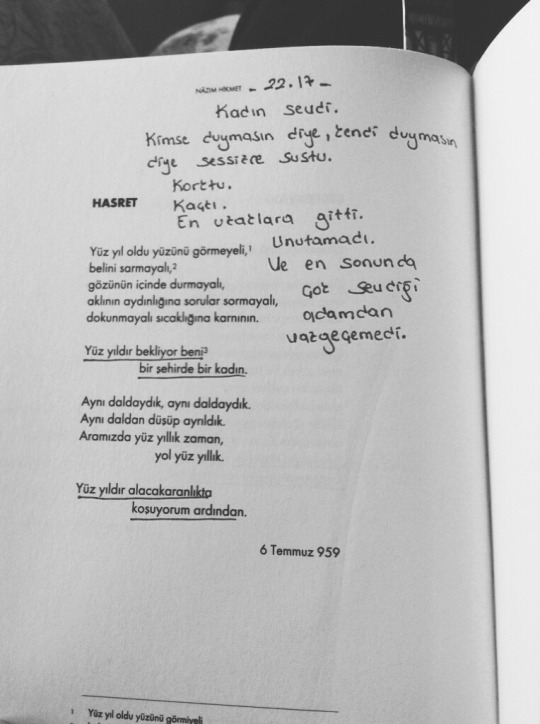 NÂZIM HİKMET - 22.17 -
Kadın sevdi.
Kimse duymasın diye, kendi duymasın
diye sessizce sustu.
Korktu.
Kaçtı.
En uzaklara gitti.
Unutamadı.
Ve en sonunda
çok sevdiği
adamdan
vazgeçemedi.
HASRET
Yüz yıl oldu yüzünü görmeyeli,¹
belini sarmayalı,²
gözünün içinde durmayalı,
aklının aydınlığına sorular sormayalı,
dokunmayalı sıcaklığına karnının.
Yüz yıldır bekliyor beni³
bir şehirde bir kadın.
Aynı daldaydık, aynı daldaydık.
Aynı daldan düşüp ayrıldık.
Aramızda yüz yıllık zaman,
yol yüz yıllık.
Yüz yıldır alacakaranlıkta
koşuyorum ardından.
6 Temmuz 959
¹ Yüz yıl oldu yüzünü görmiyeli